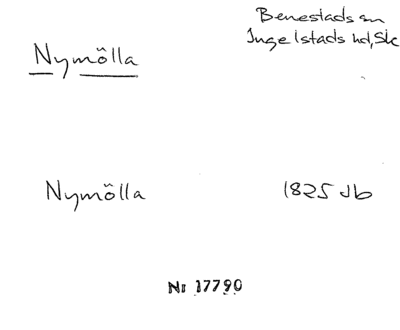 Benestads sn
Ingelstads hd, Sk
Nymölla
Nymölla 1825 Jb
Nr 17790